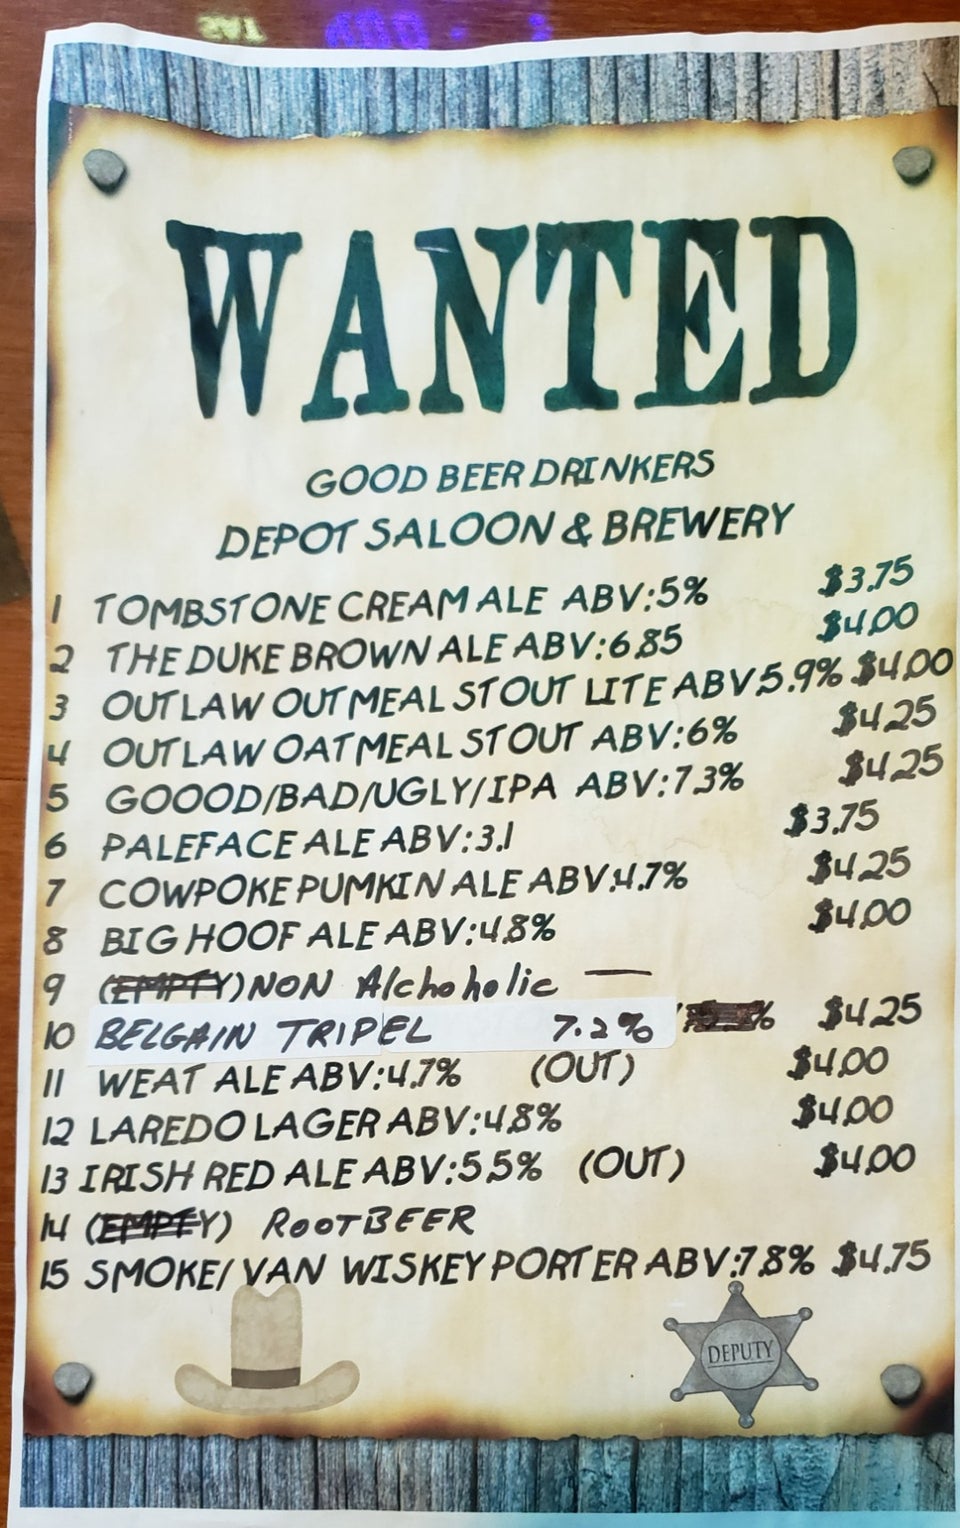 WANTED
GOOD BEER DRINKERS
DEPOT SALOON & BREWERY
1 TOMBSTONE CREAM ALE ABV:5% $3.75
2 THE DUKE BROWN ALE ABV:6.85 $4.00
3 OUTLAW OUTMEAL STOUT LITE ABV 5.9% $4.00
4 OUTLAW OATMEAL STOUT ABV:6% $4.25
5 GOOOD/BAD/UGLY/IPA ABV:7.3% $4.25
6 PALEFACE ALE ABV:3.1 $3.75
7 COWPOKE PUMKIN ALE ABV:4.7% $4.25
8 BIG HOOF ALE ABV:4.8% $4.00
9 (EMPTY) NON Alchoholic —
10 BELGAIN TRIPEL 7.2% % $4.25
11 WEAT ALE ABV:4.7% (OUT) $4.00
12 LAREDO LAGER ABV:4.8% $4.00
13 IRISH RED ALE ABV:5.5% (OUT) $4.00
14 (EMPTY) ROOTBEER
15 SMOKE/ VAN WISKEY PORTER ABV:7.8% $4.75
DEPUTY